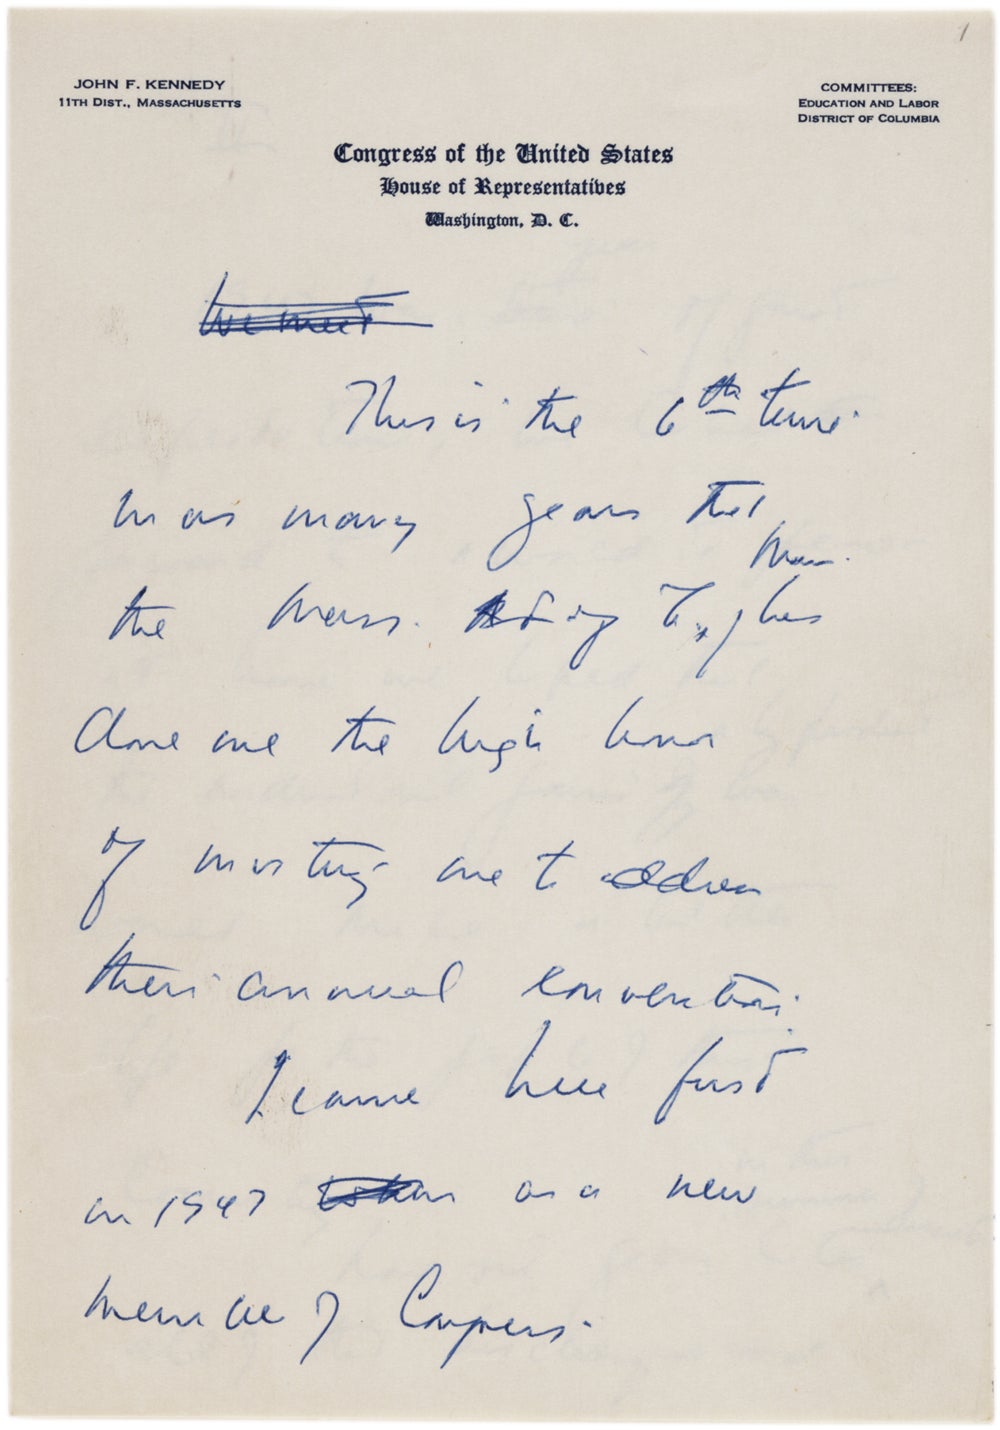 1
JOHN F. KENNEDY
11TH DIST., MASSACHUSETTS
COMMITTEES:
EDUCATION AND LABOR
DISTRICT OF COLUMBIA
Congress of the United States
House of Representatives
Washington, D. C.
We meet
This is the 6th time
in as many years that
the Mass.
done me the high honor
of inviting me to address
their annual convention.
I came here first
in 1947 as a new
member of Congress.